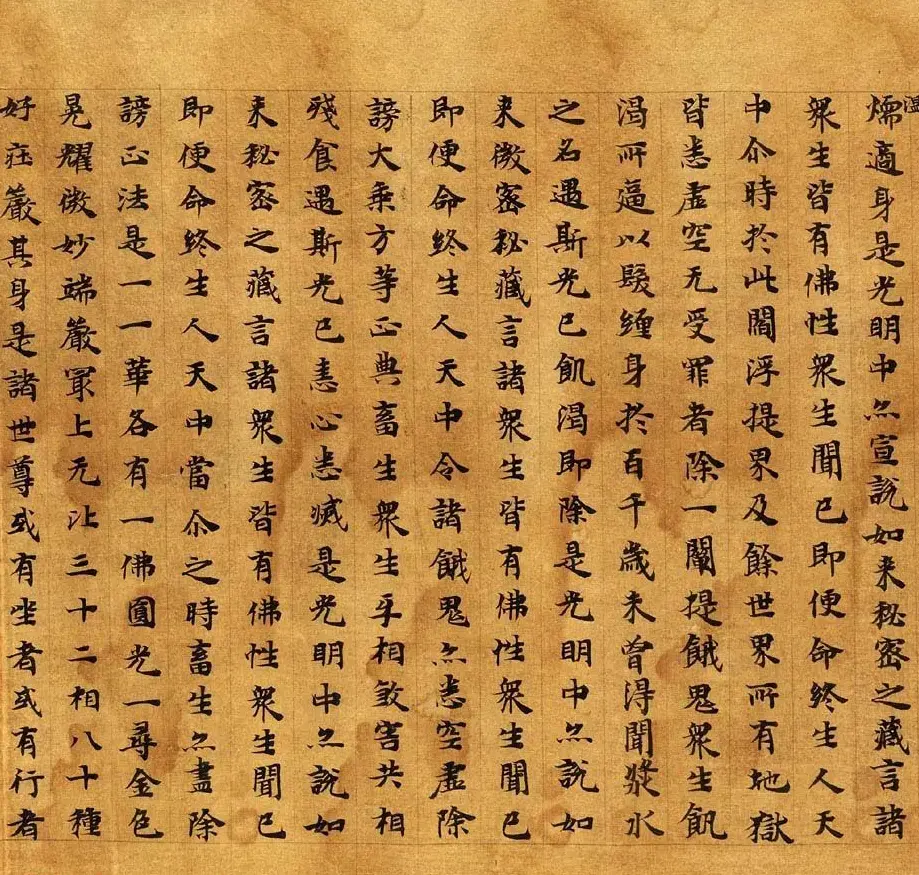 燸適身是光明中亦宣說如来秘密之藏言諸
衆生皆有佛性衆生聞已即便命終生人天
中尒時扵此閻浮提界及餘世界所有地獄
皆悉虚空无受罪者除一闡提餓鬼衆生飢
渴所逼以髮纏身扵百千歲未曾得聞漿水
之名遇斯光已飢渴即除是光明中亦說如
来微密秘藏言諸衆生皆有佛性衆生聞已
即便命終生人天中令諸餓鬼亦悉空虚除
謗大乗方等正典畜生衆生㸦相煞害共相
殘食遇斯光已恚心悉滅是光明中亦說如
来秘密之藏言諸衆生皆有佛性衆生聞已
即便命終生人天中當尒之時畜生亦盡除
謗正法是一一華各有一佛圓光一尋金色
晃耀微妙端嚴冣上无比三十二相八十種
好莊嚴其身是諸世尊或有坐者或有行者